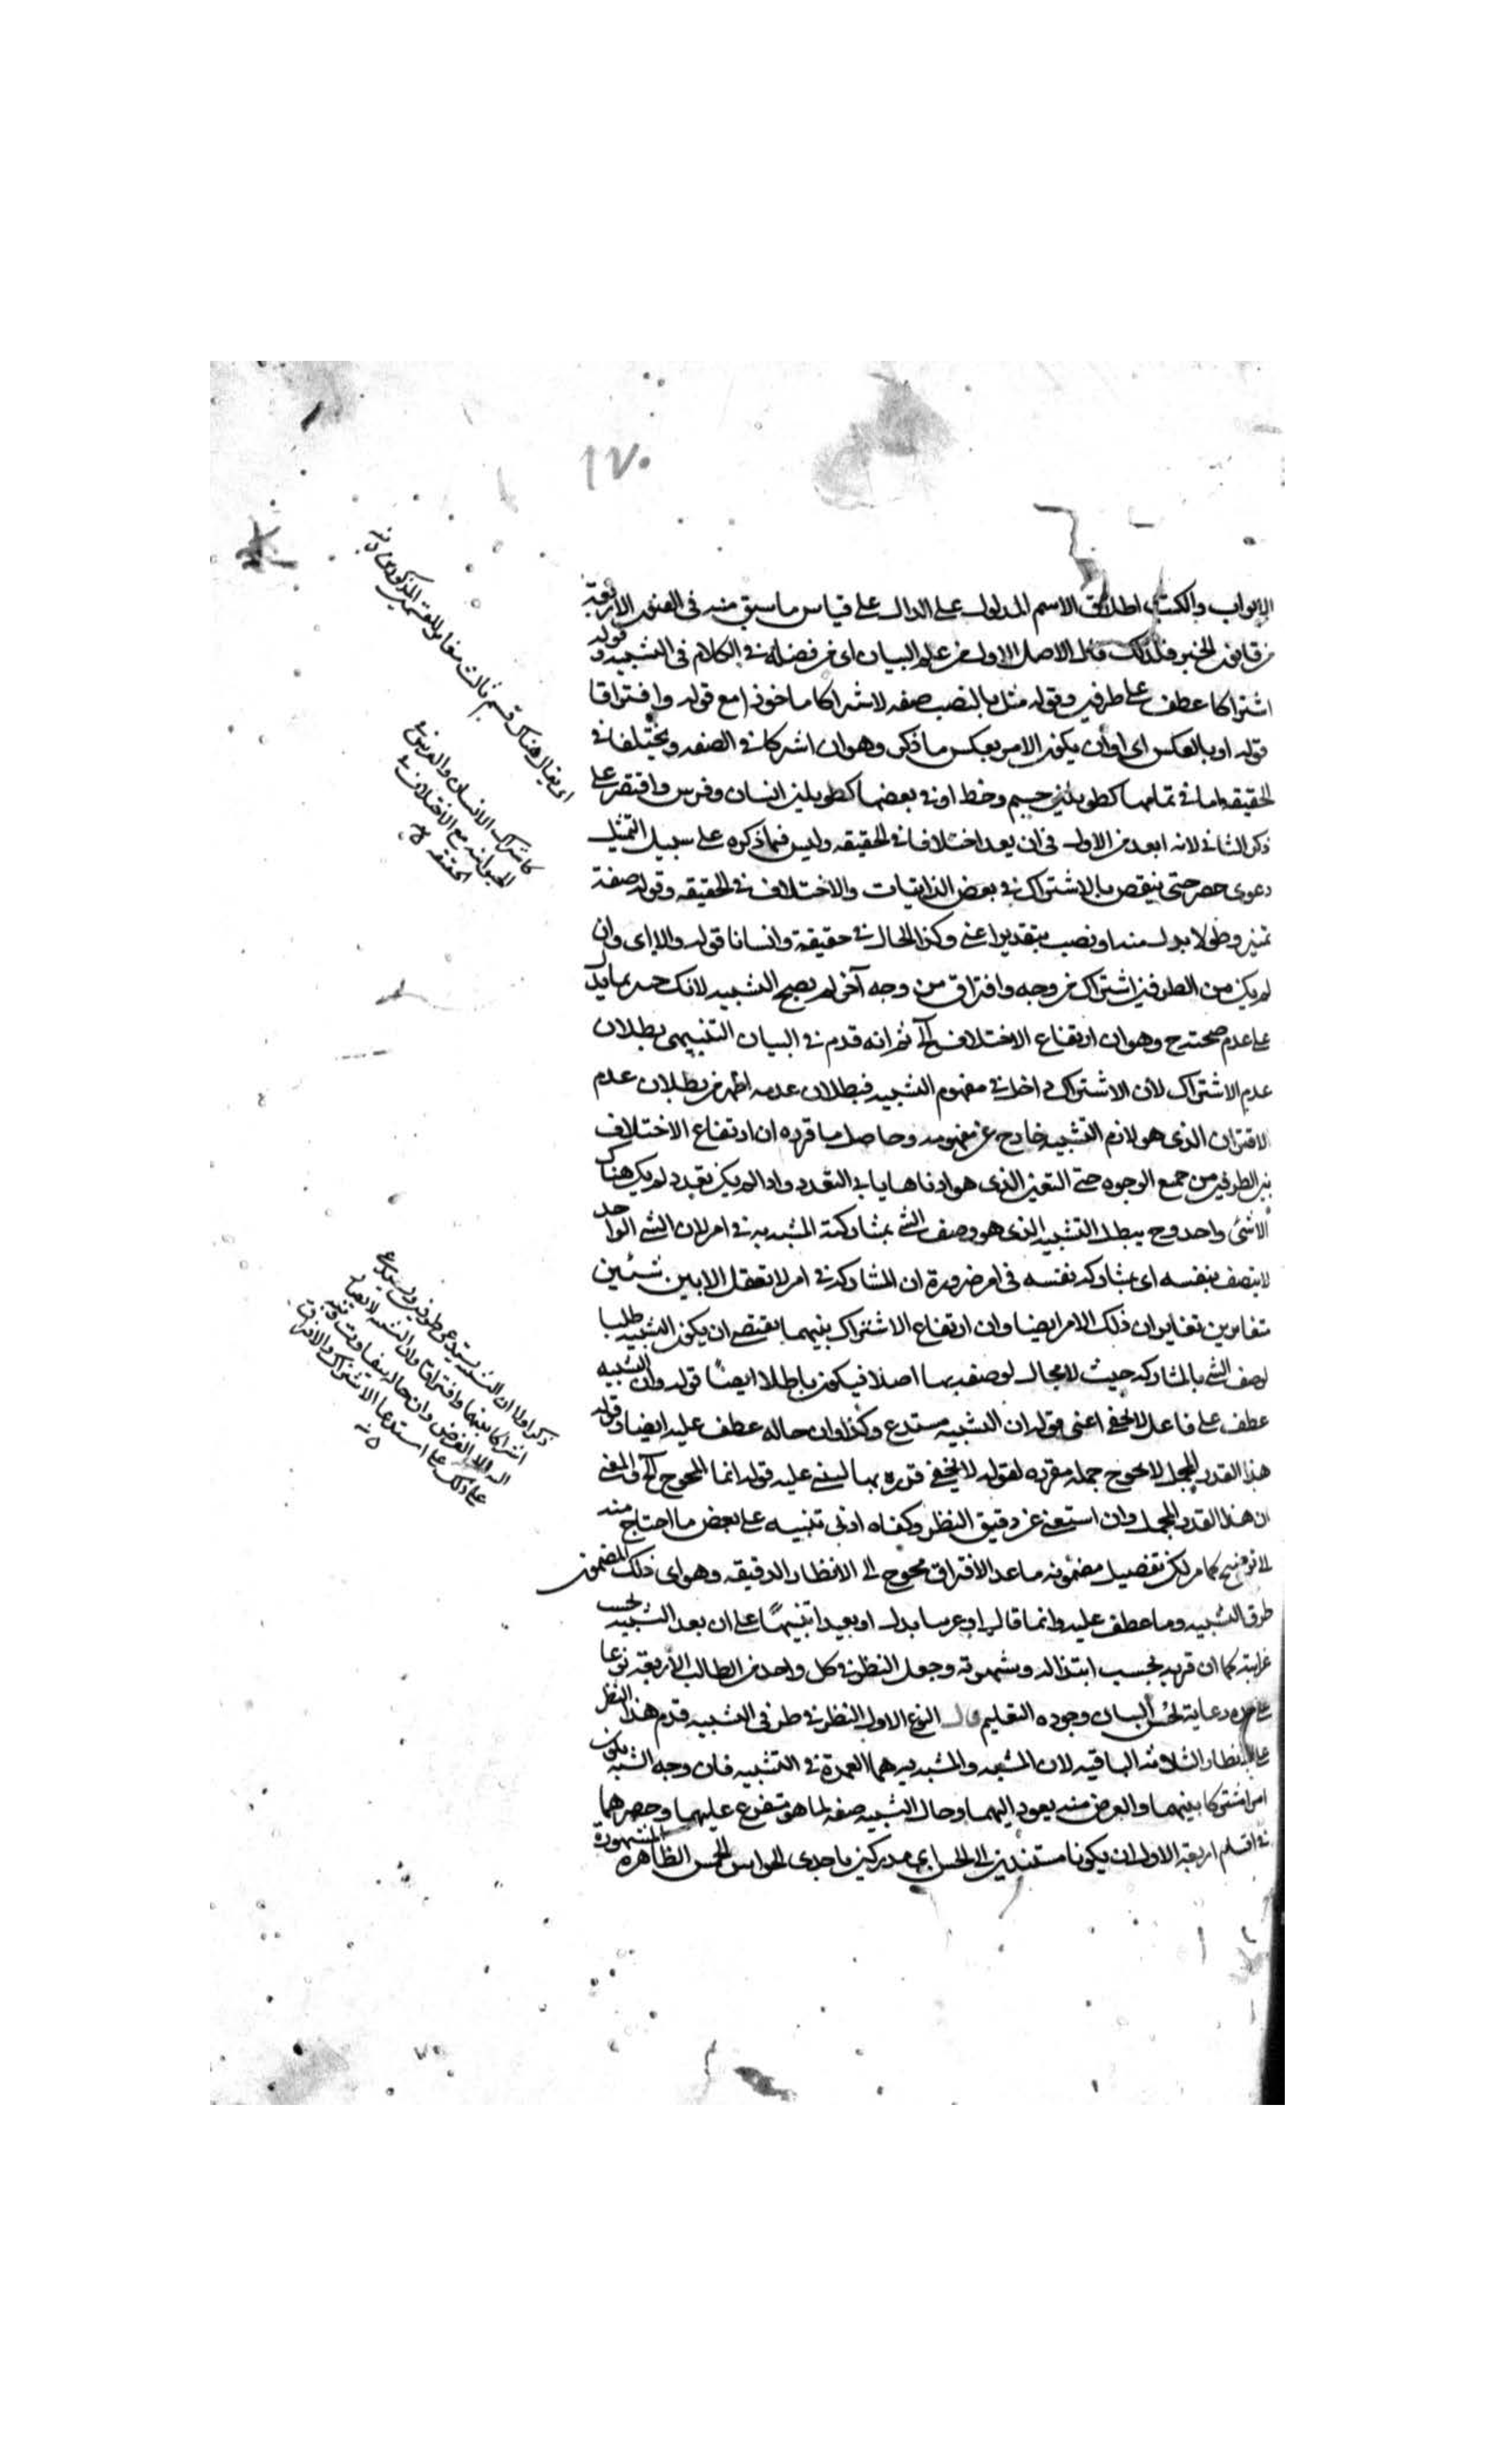 ١٧٠
الابواب والكتب اطلاق الاسم المدلول على الدال على قياس ما سبق منه فى الفنون الاربعة
من قانون الخبر فلذلك قال الاصل الاول من علم البيان اى من فضله فى الكلام فى التشبيه وقوله
اشتراكا عطف على طرفين وقوله مثل بالنصب صفه لاشتراكا ماخوذا مع قوله وافتراقا
قوله او بالعكس اى او أن يكون الامر بعكس ما ذكر وهو ان اشتركا فى الصفه ويختلفا فى
الحقيقه اما فى تمامها كطويلين جسم وخط او فى بعضها كطويلين انسان وفرس واقتصر على
ذكر الثانى لانه ابعد من الاول فى ان يعد اختلافا فى الحقيقه وليس فيما ذكره على سبيل التمثيل
دعوى حصر حتى ينقض بالاشتراك فى بعض الذاتيات والاختلاف فى الحقيقه وقوله صفة
تمييز وطولا بدل منه او نصب بتقدير اعنى وكذا الحال فى حقيقة وانسانا قوله والا اى وان
لم يكن من الطرفين اشتراك من وجه وافتراق من وجه آخر لم يصح التشبيه لانك خبير بما يدل
على عدم صحته ح وهو ان ارتفاع الاختلاف الخ ثم انه قدم فى البيان التنبيهى بطلان
عدم الاشتراك لأن الاشتراك داخل فى مفهوم التشبيه فبطلان عدمه اظهر من بطلان عدم
الافتراق الذى هو لازم التشبيه خارج عن مفهومه وحاصل ما قرره ان ارتفاع الاختلاف
بين الطرفين من جميع الوجوه حتى التعين الذى هو ادناها يابى التعدد واذا لم يكن تعدد لم يكن هناك
الا شئ واحد وح يبطل التشبيه الذى هو وصف الشئ بمشاركة المشبه به فى امر لان الشئ الواحد
لا يتصف بنفسه اى بمشاركة نفسه فى امر ضرورة ان المشاركه فى امر لا تعقل الا بين شيئين
متغايرين تغايرا ان ذلك الامر ايضا وان ارتفاع الاشتراك بينهما يقتضى ان يكون التشبيه طلبا
لوصف الشئ بالمشاركه حيث لا مجال لوصفه بها اصلا فيكون باطلا ايضا قوله وان التشبيه
عطف على فاعل لا يخفى اعنى قوله ان التشبيه مستدع وكذا وان حاله عطف عليه ايضا وقوله
هذا القدر المجمل لا يحوج جمله مقرره لقوله لا يخفى قرره بها ليبنى عليه قوله انما المحوج الخ والمعنى
ان هذا القدر المجمل وان استغنى عن دقيق النظر وكفاه ادنى تنبيه على بعض ما احتاج منه
الى توضيح كما مر لكن تفصيل مضمونه ما عدا الافتراق محوج الى الانظار الدقيقه وهو اى ذلك المضمون
طرفا التشبيه وما عطف عليه وانما قال او غريبا بدل او بعيدا تنبيها على ان بعد التشبيه بحسب
غرابته كما ان قربه بحسب ابتذاله وشهرته وجعل النظر فى كل واحد من المطالب الأربعة نوعا
على حده رعاية لحسن البيان وجوده التعليم قال النوع الاول النظر فى طرفى التشبيه قدم هذا النظر
على الانظار الثلاثه الباقيه لان المشبه والمشبه به هما العمدة فى التشبيه فان وجه الشبه يكون
امرا مشتركا بينهما والغرض منه يعود اليهما وحال التشبيه صفه لما هو متفرع عليهما وحصرهما
فى اقسام اربعة الاول ان يكونا مستندين الى الحس اى مدركين باحدى الحواس الخمس الظاهره المشهورة
اى يقال هناك قسم ثالث مغاير للقسمين المذكورين
كاشتراك الانسان والفرس فى
الحيوانيه مع الاختلاف فى
الحقيقه
ذكر اولا ان التشبيه يستدعى طرفين ويستدعى
اشتراكا بينهما وافتراقا وان التشبيه لا يصار
اليه الا لغرض وان حاله يتفاوت
على ذلك على استدعا الاشتراك والافتراق